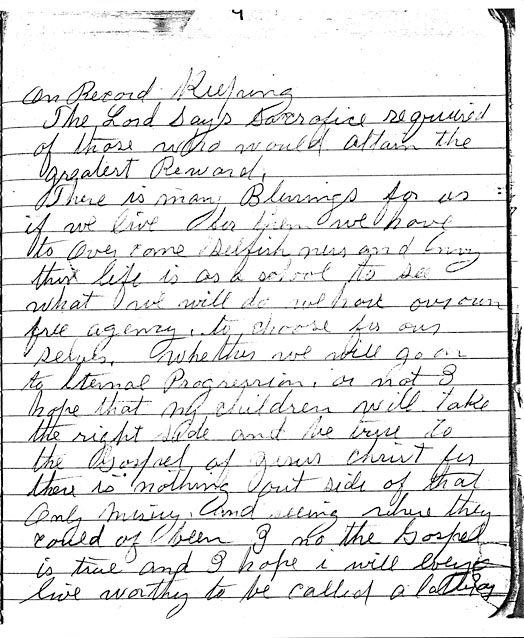 4
On Record Keeping
The Lord Says Sacrafice required
of those who would attain the
greatest Reward.
There is many Blessings for us
if we live for them we have
to over come selfish ness and envy
this life is as a school to see
what we will do we have our own
free agency. to choose for our
selves. whether we will go on
to Eternal Progression. or not I
hope that my children will take
the right side and be true to
the Gospel of Jesus Christ for
there is nothing out side of that
Only misery. And seeing where they
could of been I no the Gospel
is true and I hope i will
live worthy to be called a